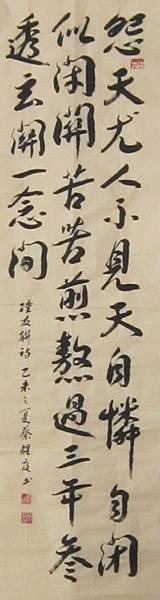 怨天尤人不見天自憐自閉
似閉關苦苦煎熬過三年參
透玄關一念間
友聯詩乙未之夏蔡耀庭书